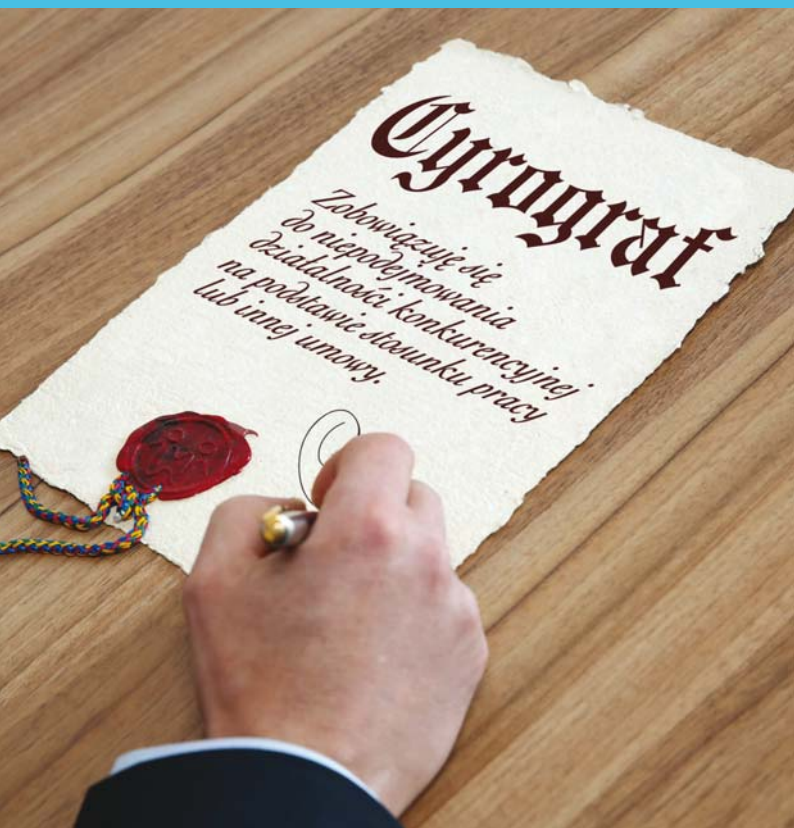 Cyrograf
Zobowiązuję się
do niepodejmowania
działalności konkurencyjnej
na podstawie stosunku pracy
lub innej umowy.